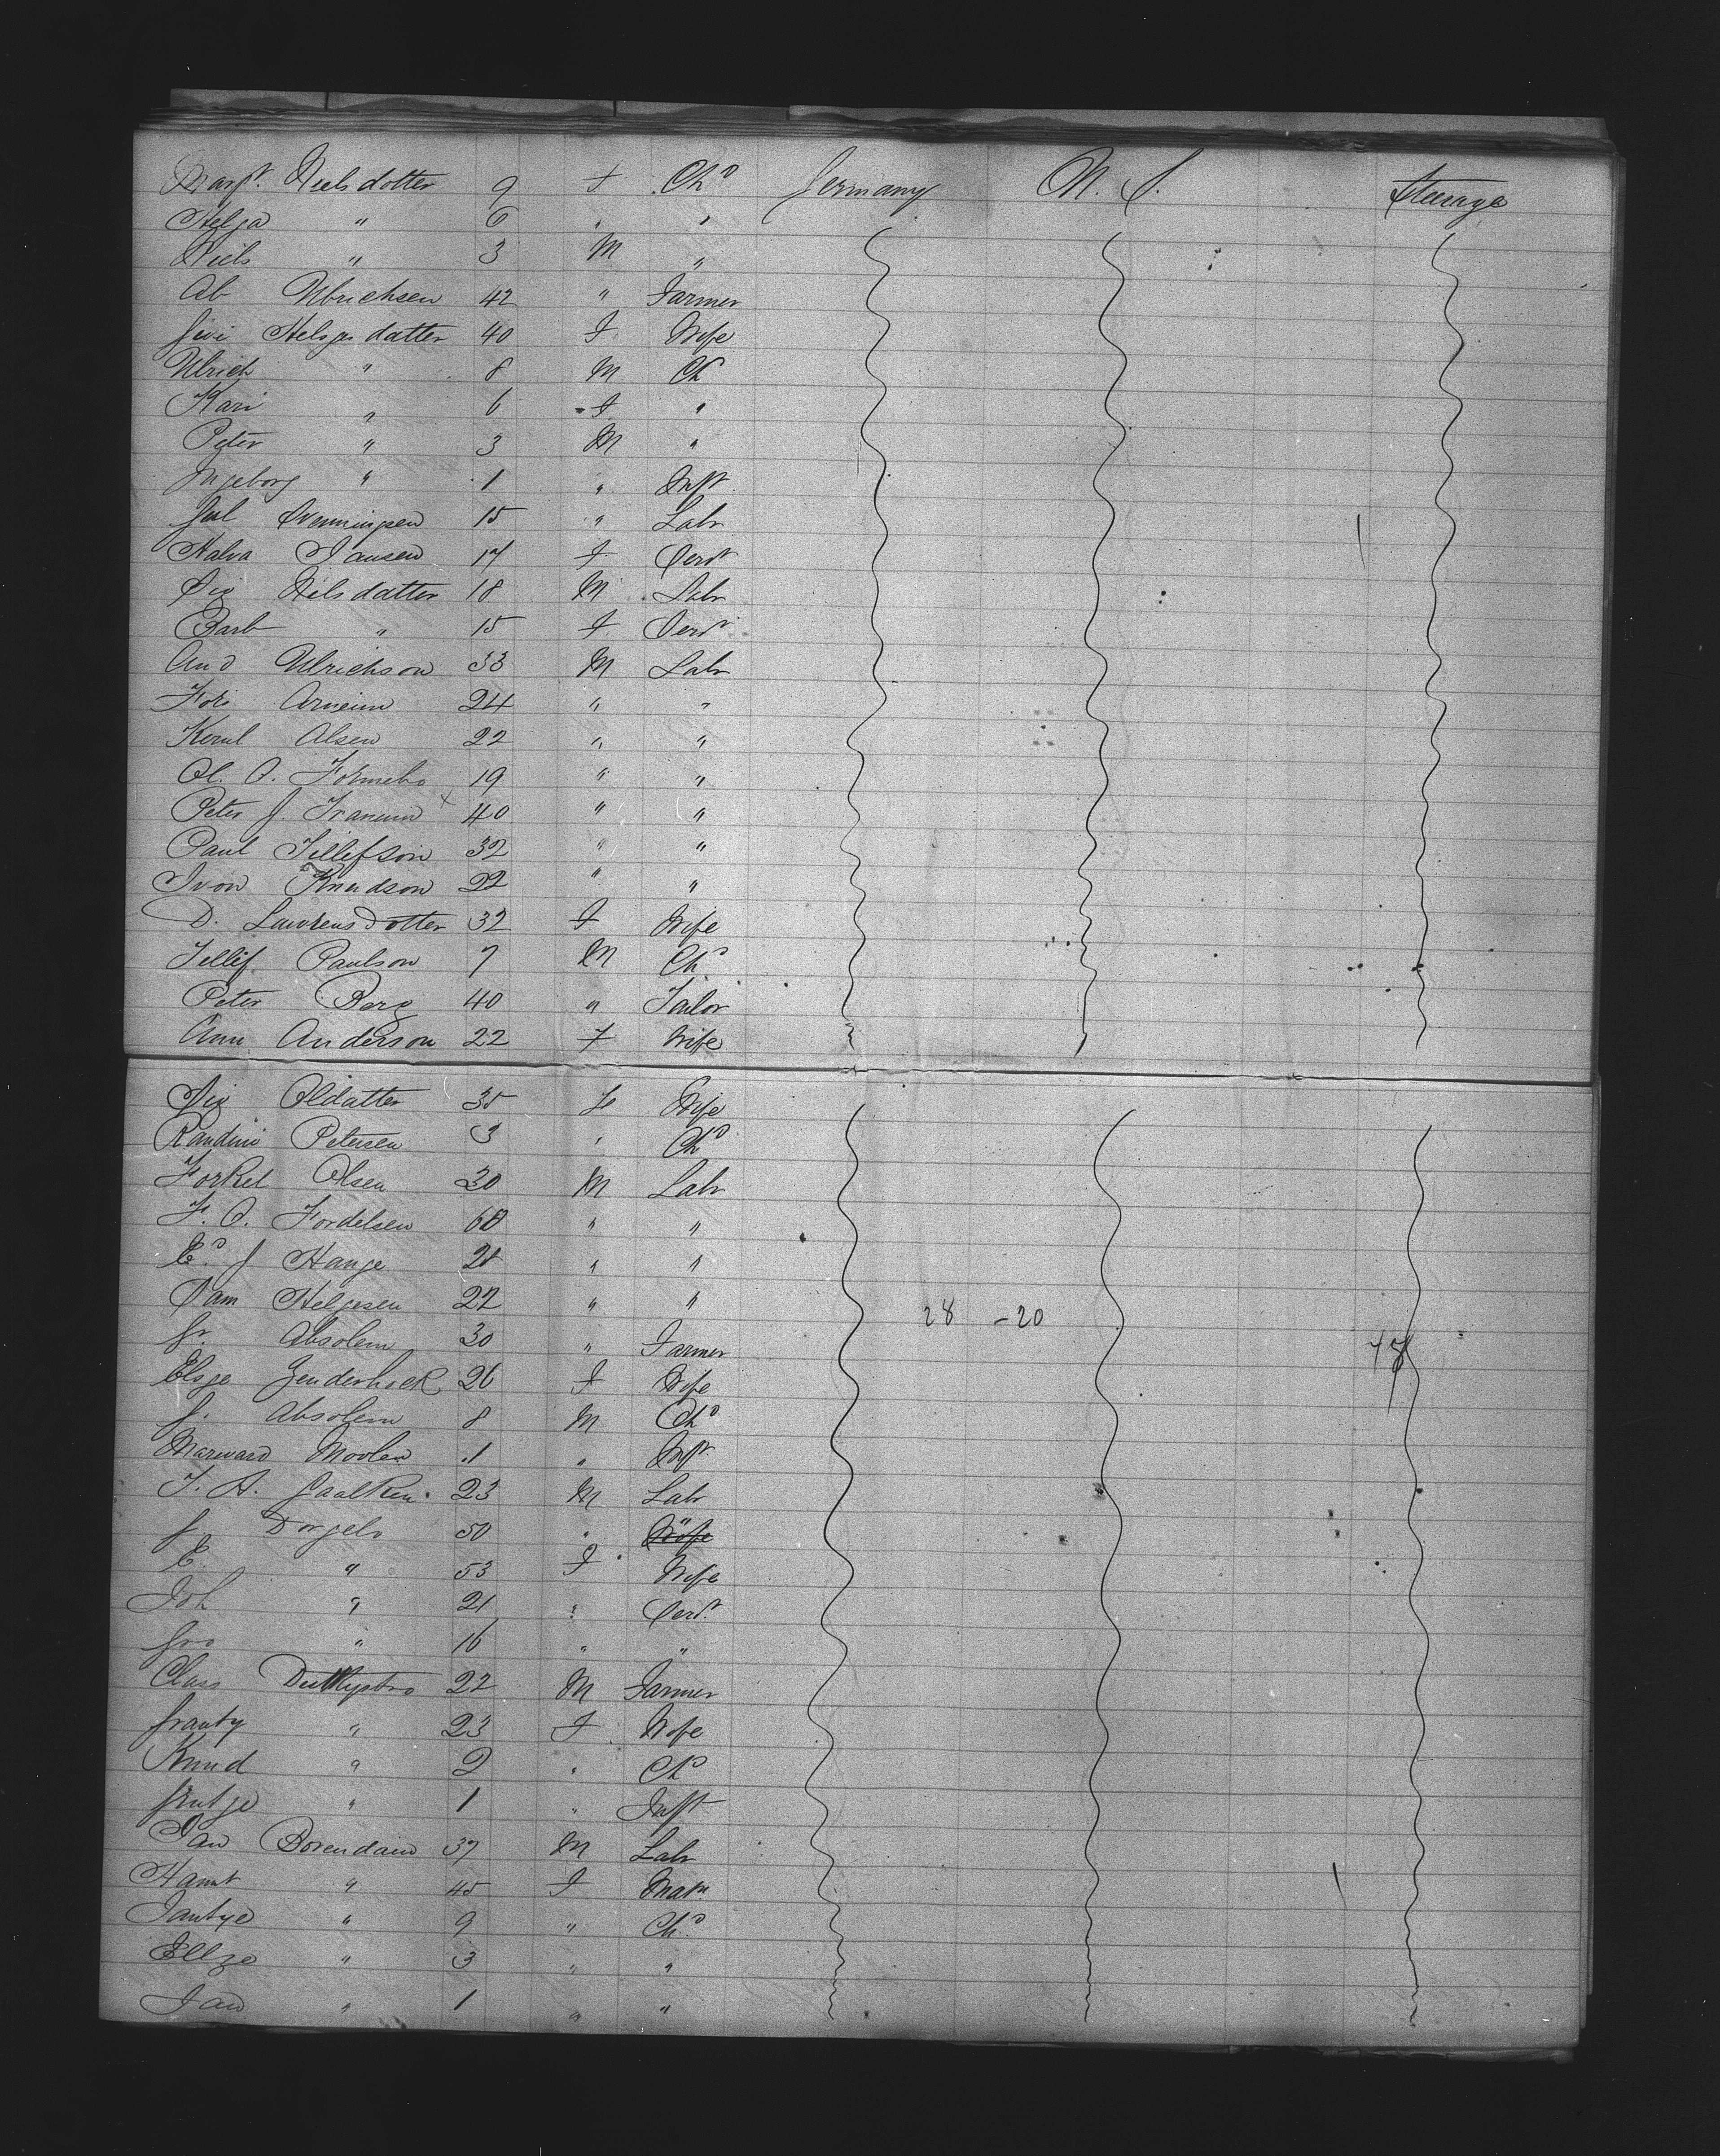 Margt. Neels dotter 9 F Chd Germany U. S. Steerage
Helga " 6 " "
Niels " 3 M "
Ab Ulrichsen 42 " Farmer
Helges datter 40 F Wife
Ulrich " 8 M Ch
Kari " 6 F "
Peter " 3 M "
Ingeborg " 1 " Inft
Svenningsen 15 " Labr
Halva Jansen 17 F Servt
Sig Nilsdatter 18 M Labr
Barb " 15 F Servt
And Ulrichson 33 M Labr
24 " "
Olsen 22 " "
Ol. O. 19 " "
Peter J. 40 " "
Paul Tillefson 32 " "
Ivon Knudson 22 " "
D. Laurensdotter 32 F Wife
Tellif Paulson 7 M Chd
Peter Berg 40 " Tailor
Ann Anderson 22 F Wife
Sig Oldatter 35 F Wife
Randini Petersen 3 " Chd
Torkel Olsen 30 M Labr
T. O. Tordelsen 60 " "
Ed. J Hauge 21 " "
Sam Helgesen 22 " " 28 - 20
Absolem 30 " Farmer
Elsge Genderhoek 26 F Wife
J. Absolem 8 M Chd
Marward Moolen 1 " Inft
T. A. Jaalken 23 M Labr
J Dorgelo 50 " Wife
E. " 53 F Wife
Joh " 21 " Servt
" 16 " "
Class 22 M Farmer
" 23 F Wife
Knud " 2 " Chd
" 1 " Inft
Jan Borendam 37 M Labr
Hannt " 45 F Matn
Jantye " 9 " Chd
Ellze " 3 " "
Jan " 1 " "